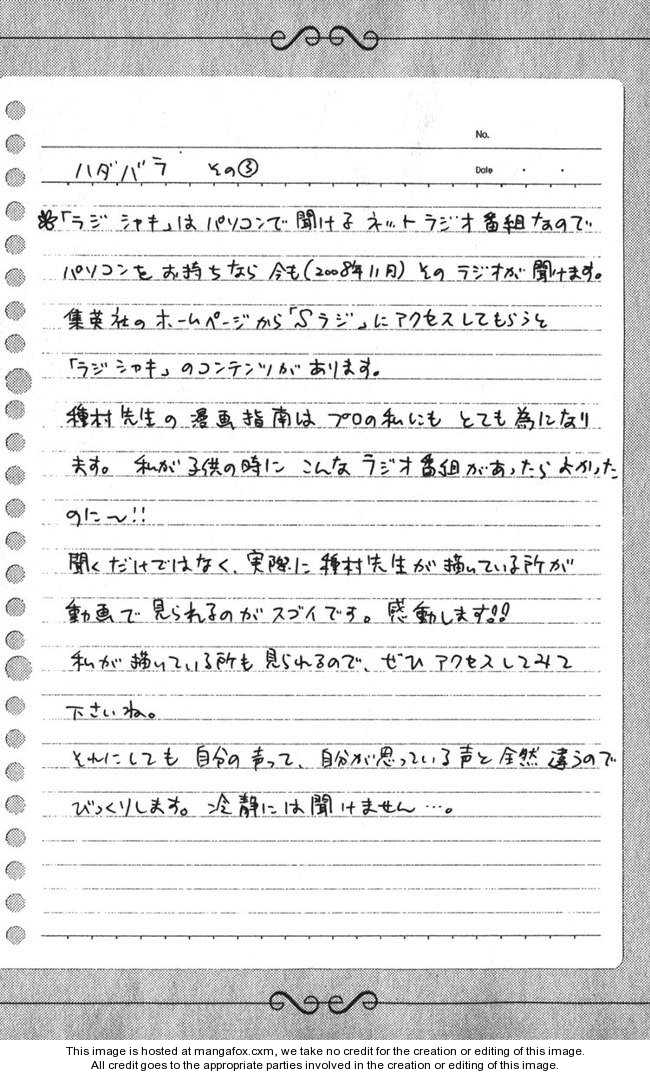 No.
ハダバラ その③
Date ・ ・
※「ラジシャキ」はパソコンで聞けるネットラジオ番組なので
パソコンをお持ちなら今も(2008年11月)そのラジオが聞けます。
集英社のホームページから「Sラジ」にアクセスしてもらうと
「ラジシャキ」のコンテンツがあります。
種村先生の漫画指南はプロの私にもとても為になり
ます。 私が子供の時にこんなラジオ番組があったらよかった
のに〜!!
聞くだけではなく、実際に種村先生が描いている所が
動画で見られるのがスゴイです。感動します!!
私が描いている所も見られるので、ぜひアクセスしてみて
下さいね。
それにしても自分の声って、自分が思っている声と全然違うので
びっくりします。冷静には聞けません…。
This image is hosted at mangafox.cxm, we take no credit for the creation or editing of this image.
All credit goes to the appropriate parties involved in the creation or editing of this image.